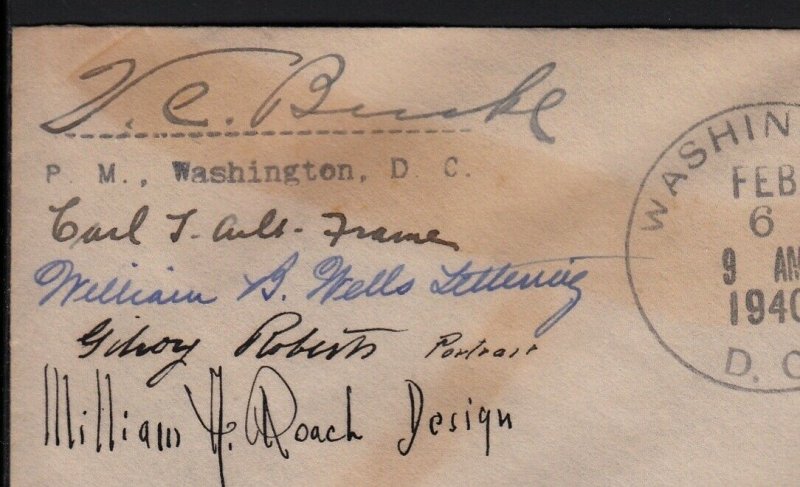 V. C. Burke
P. M., Washington, D. C.
Carl T. Arlt - Frame
William B. Wells Lettering
Gilroy Roberts Portrait
William A. Roach Design
WASHIN
FEB
6
9 AM
1940
D. C